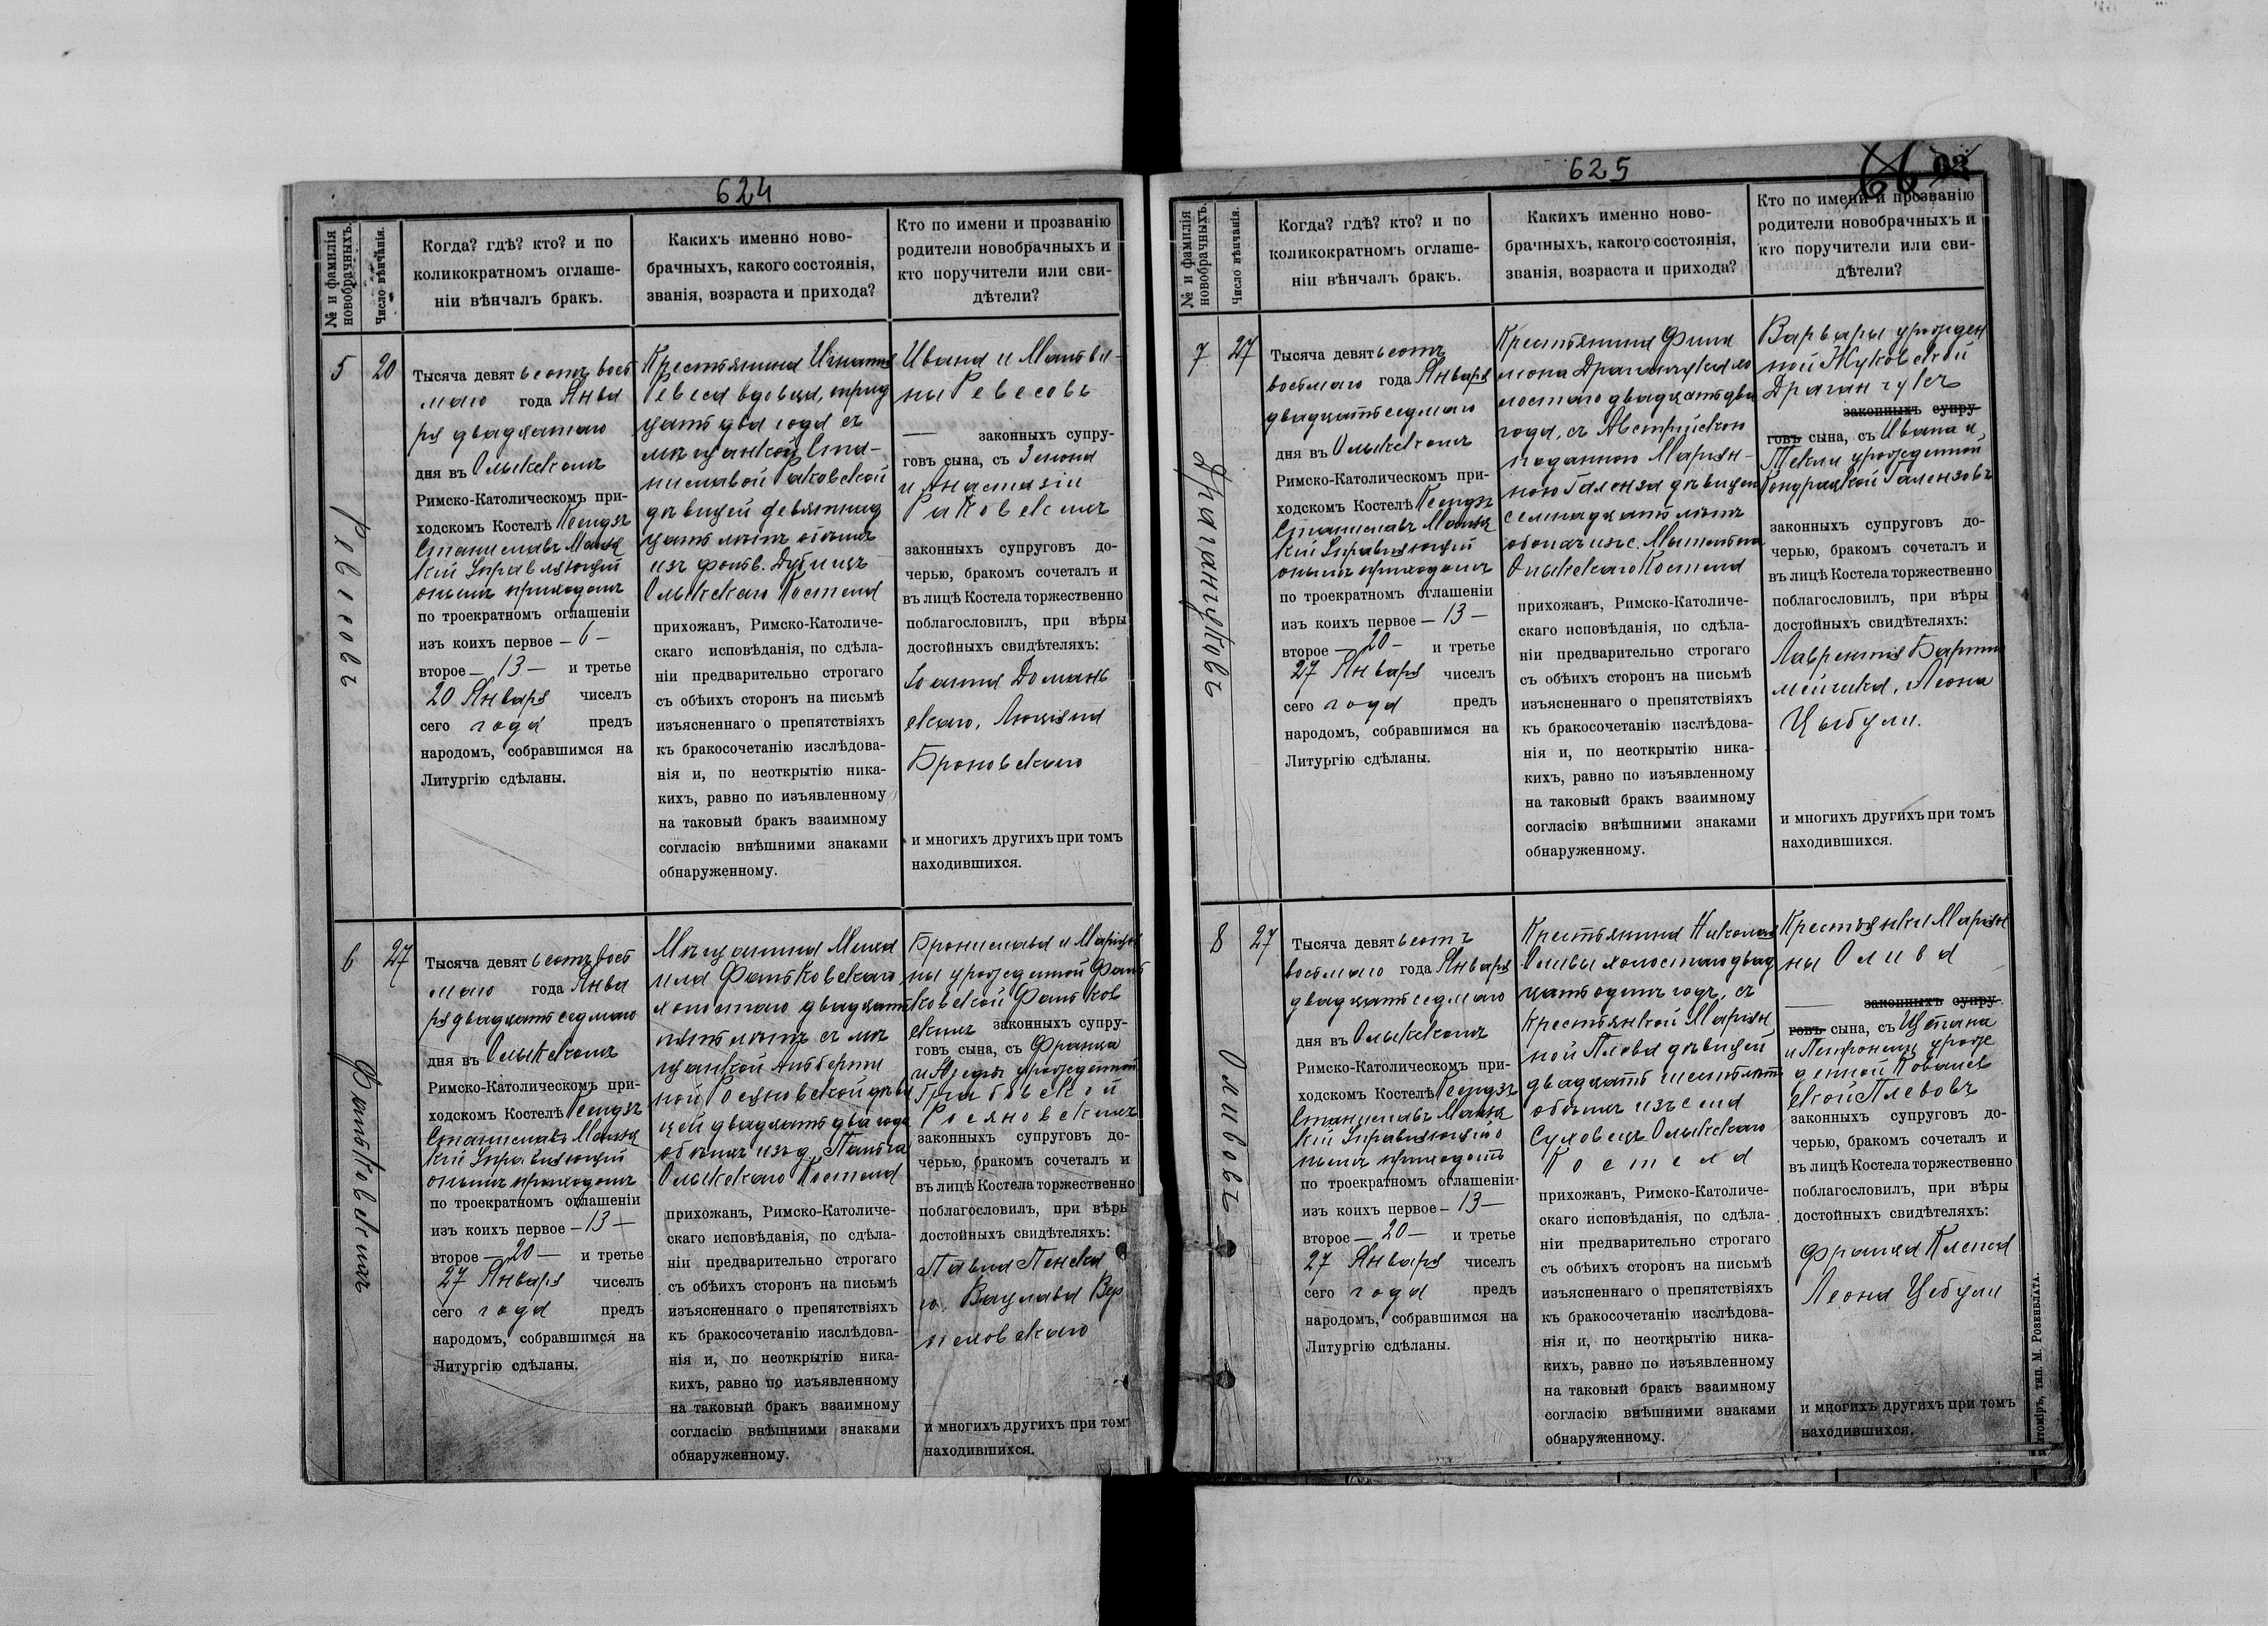 624
№ и фамилія новобрачныхъ.
Число вѣнчанія.
Когда? гдѣ? кто? и по
коликократномъ оглаше-
ніи вѣнчалъ бракъ.
Какихъ именно ново-
брачныхъ, какого состоянія,
званія, возраста и прихода?
Кто по имени и прозванію
родители новобрачныхъ и
кто поручители или сви-
дѣтели?
5
Ревесовъ
20
Тысяча девятьсотъ вось
маго года Янва
ря двадцатаго
дня въ Олыкскомъ
Римско-Католическомъ при-
ходскомъ Костелѣ Ксендзъ
Станиславъ Мацкѣ
кій Управляющій
онымъ приходомъ
по троекратномъ оглашеніи
изъ коихъ первое — 6 —
второе — 13 — и третье
20 Января чиселъ
сего года предъ
народомъ, собравшимся на
Литургію сдѣланы.
Крестьянина Игнатія
Ревеса вдовца, трид
цать два года съ
мѣщанкой Ста-
ниславой Раковской
дѣвицей девятнад
цать лѣтъ обоихъ
изъ фольв. Дубищъ
Олыкскаго Костела
прихожанъ, Римско-Католиче-
скаго исповѣданія, по сдѣла-
ніи предварительно строгаго
съ обѣихъ сторонъ на письмѣ
изъясненнаго о препятствіяхъ
къ бракосочетанію изслѣдова-
нія и, по неоткрытію ника-
кихъ, равно по изъявленному
на таковый бракъ взаимному
согласію внѣшними знаками
обнаруженному.
Ивана и Матви-
ны Ревесовъ
— законныхъ супру-
говъ сына, съ Зенона
и Анастазіи
Раковскихъ
законныхъ супруговъ до-
черью, бракомъ сочеталъ и
въ лицѣ Костела торжественно
поблагословилъ, при вѣры
достойныхъ свидѣтеляхъ:
Іоанна Домань
скаго, Люціана
Броновскаго
и многихъ другихъ при томъ
находившихся.
6
Фальковскихъ
27
Тысяча девятьсотъ вось
маго года Янва
ря двадцать седмаго
дня въ Олыкскомъ
Римско-Католическомъ при-
ходскомъ Костелѣ Ксендзъ
Станиславъ Мацкѣ
кій Управляющій
онымъ приходомъ
по троекратномъ оглашеніи
изъ коихъ первое — 13 —
второе — 20 — и третье
27 Января чиселъ
сего года предъ
народомъ, собравшимся на
Литургію сдѣланы.
Мѣщанина Миха
ила Фальковскаго
холостаго двадцать
пять лѣтъ съ мѣ
щанкой Альберти
ной Росяновской дѣви
цей двадцать два года
обоихъ изъ д.
Олыкскаго Костела
прихожанъ, Римско-Католиче-
скаго исповѣданія, по сдѣла-
ніи предварительно строгаго
съ обѣихъ сторонъ на письмѣ
изъясненнаго о препятствіяхъ
къ бракосочетанію изслѣдова-
нія и, по неоткрытію ника-
кихъ, равно по изъявленному
на таковый бракъ взаимному
согласію внѣшними знаками
обнаруженному.
Бронислава и Маріан
ны урожденной Фаль
ковской Фальков
скихъ законныхъ супру-
говъ сына, съ Франца
и Юзефы урожденной
Грабовской
Росяновскихъ
законныхъ супруговъ до-
черью, бракомъ сочеталъ и
въ лицѣ Костела торжественно
поблагословилъ, при вѣры
достойныхъ свидѣтеляхъ:
Павла Пенска
го, Вацлава Вер
иловскаго
и многихъ другихъ при томъ
находившихся.
625
66
№ и фамилія новобрачныхъ.
Число вѣнчанія.
Когда? гдѣ? кто? и по
коликократномъ оглаше-
ніи вѣнчалъ бракъ.
Какихъ именно ново-
брачныхъ, какого состоянія,
званія, возраста и прихода?
Кто по имени и прозванію
родители новобрачныхъ и
кто поручители или сви-
дѣтели?
7
Драганчуковъ
27
Тысяча девятьсотъ
восьмаго года Января
двадцать седмаго
дня въ Олыкскомъ
Римско-Католическомъ при-
ходскомъ Костелѣ Ксендзъ
Станиславъ Мацкѣ
кій Управляющій
онымъ приходомъ
по троекратномъ оглашеніи
изъ коихъ первое — 13 —
второе — 20 — и третье
27 Января чиселъ
сего года предъ
народомъ, собравшимся на
Литургію сдѣланы.
Крестьянина Фили
мона Драганчука хо
лостаго двадцать два
года, съ Австрійской
подданною Маріан-
ною Галенза дѣвицей
семнадцать лѣтъ
обоихъ изъ с.
Олыкскаго Костела
прихожанъ, Римско-Католиче-
скаго исповѣданія, по сдѣла-
ніи предварительно строгаго
съ обѣихъ сторонъ на письмѣ
изъясненнаго о препятствіяхъ
къ бракосочетанію изслѣдова-
нія и, по неоткрытію ника-
кихъ, равно по изъявленному
на таковый бракъ взаимному
согласію внѣшними знаками
обнаруженному.
Варвары урожден
ной Жуковской
Драганчукъ
законныхъ супру-
говъ сына, съ Ивана и
Текли урожденной
Кондрацкой Галензовъ
законныхъ супруговъ до-
черью, бракомъ сочеталъ и
въ лицѣ Костела торжественно
поблагословилъ, при вѣры
достойныхъ свидѣтеляхъ:
Лаврентія Барто
мейчика, Леона
Цыбули.
и многихъ другихъ при томъ
находившихся.
8
Оливовъ
27
Тысяча девятьсотъ
восьмаго года Января
двадцать седмаго
дня въ Олыкскомъ
Римско-Католическомъ при-
ходскомъ Костелѣ Ксендзъ
Станиславъ Мацкѣ
кій Управляющій о
нымъ приходомъ
по троекратномъ оглашеніи
изъ коихъ первое — 13 —
второе — 20 — и третье
27 Января чиселъ
сего года предъ
народомъ, собравшимся на
Литургію сдѣланы.
Крестьянина Николая
Оливы холостаго двад
цать одинъ годъ, съ
крестьянкой Маріан
ной Плева дѣвицей
двадцать шесть лѣтъ
обоихъ изъ села
Суховецъ Олыкскаго
Костела
прихожанъ, Римско-Католиче-
скаго исповѣданія, по сдѣла-
ніи предварительно строгаго
съ обѣихъ сторонъ на письмѣ
изъясненнаго о препятствіяхъ
къ бракосочетанію изслѣдова-
нія и, по неоткрытію ника-
кихъ, равно по изъявленному
на таковый бракъ взаимному
согласію внѣшними знаками
обнаруженному.
Крестьянки Маріан
ны Олива
— законныхъ супру-
говъ сына, съ Щепана
и Петронели урож
денной Ковалев
ской Плевовъ
законныхъ супруговъ до-
черью, бракомъ сочеталъ и
въ лицѣ Костела торжественно
поблагословилъ, при вѣры
достойныхъ свидѣтеляхъ:
Франца Клепса
Леона Цебули
и многихъ другихъ при томъ
находившихся.
Житоміръ, тип. М. Розенблата.